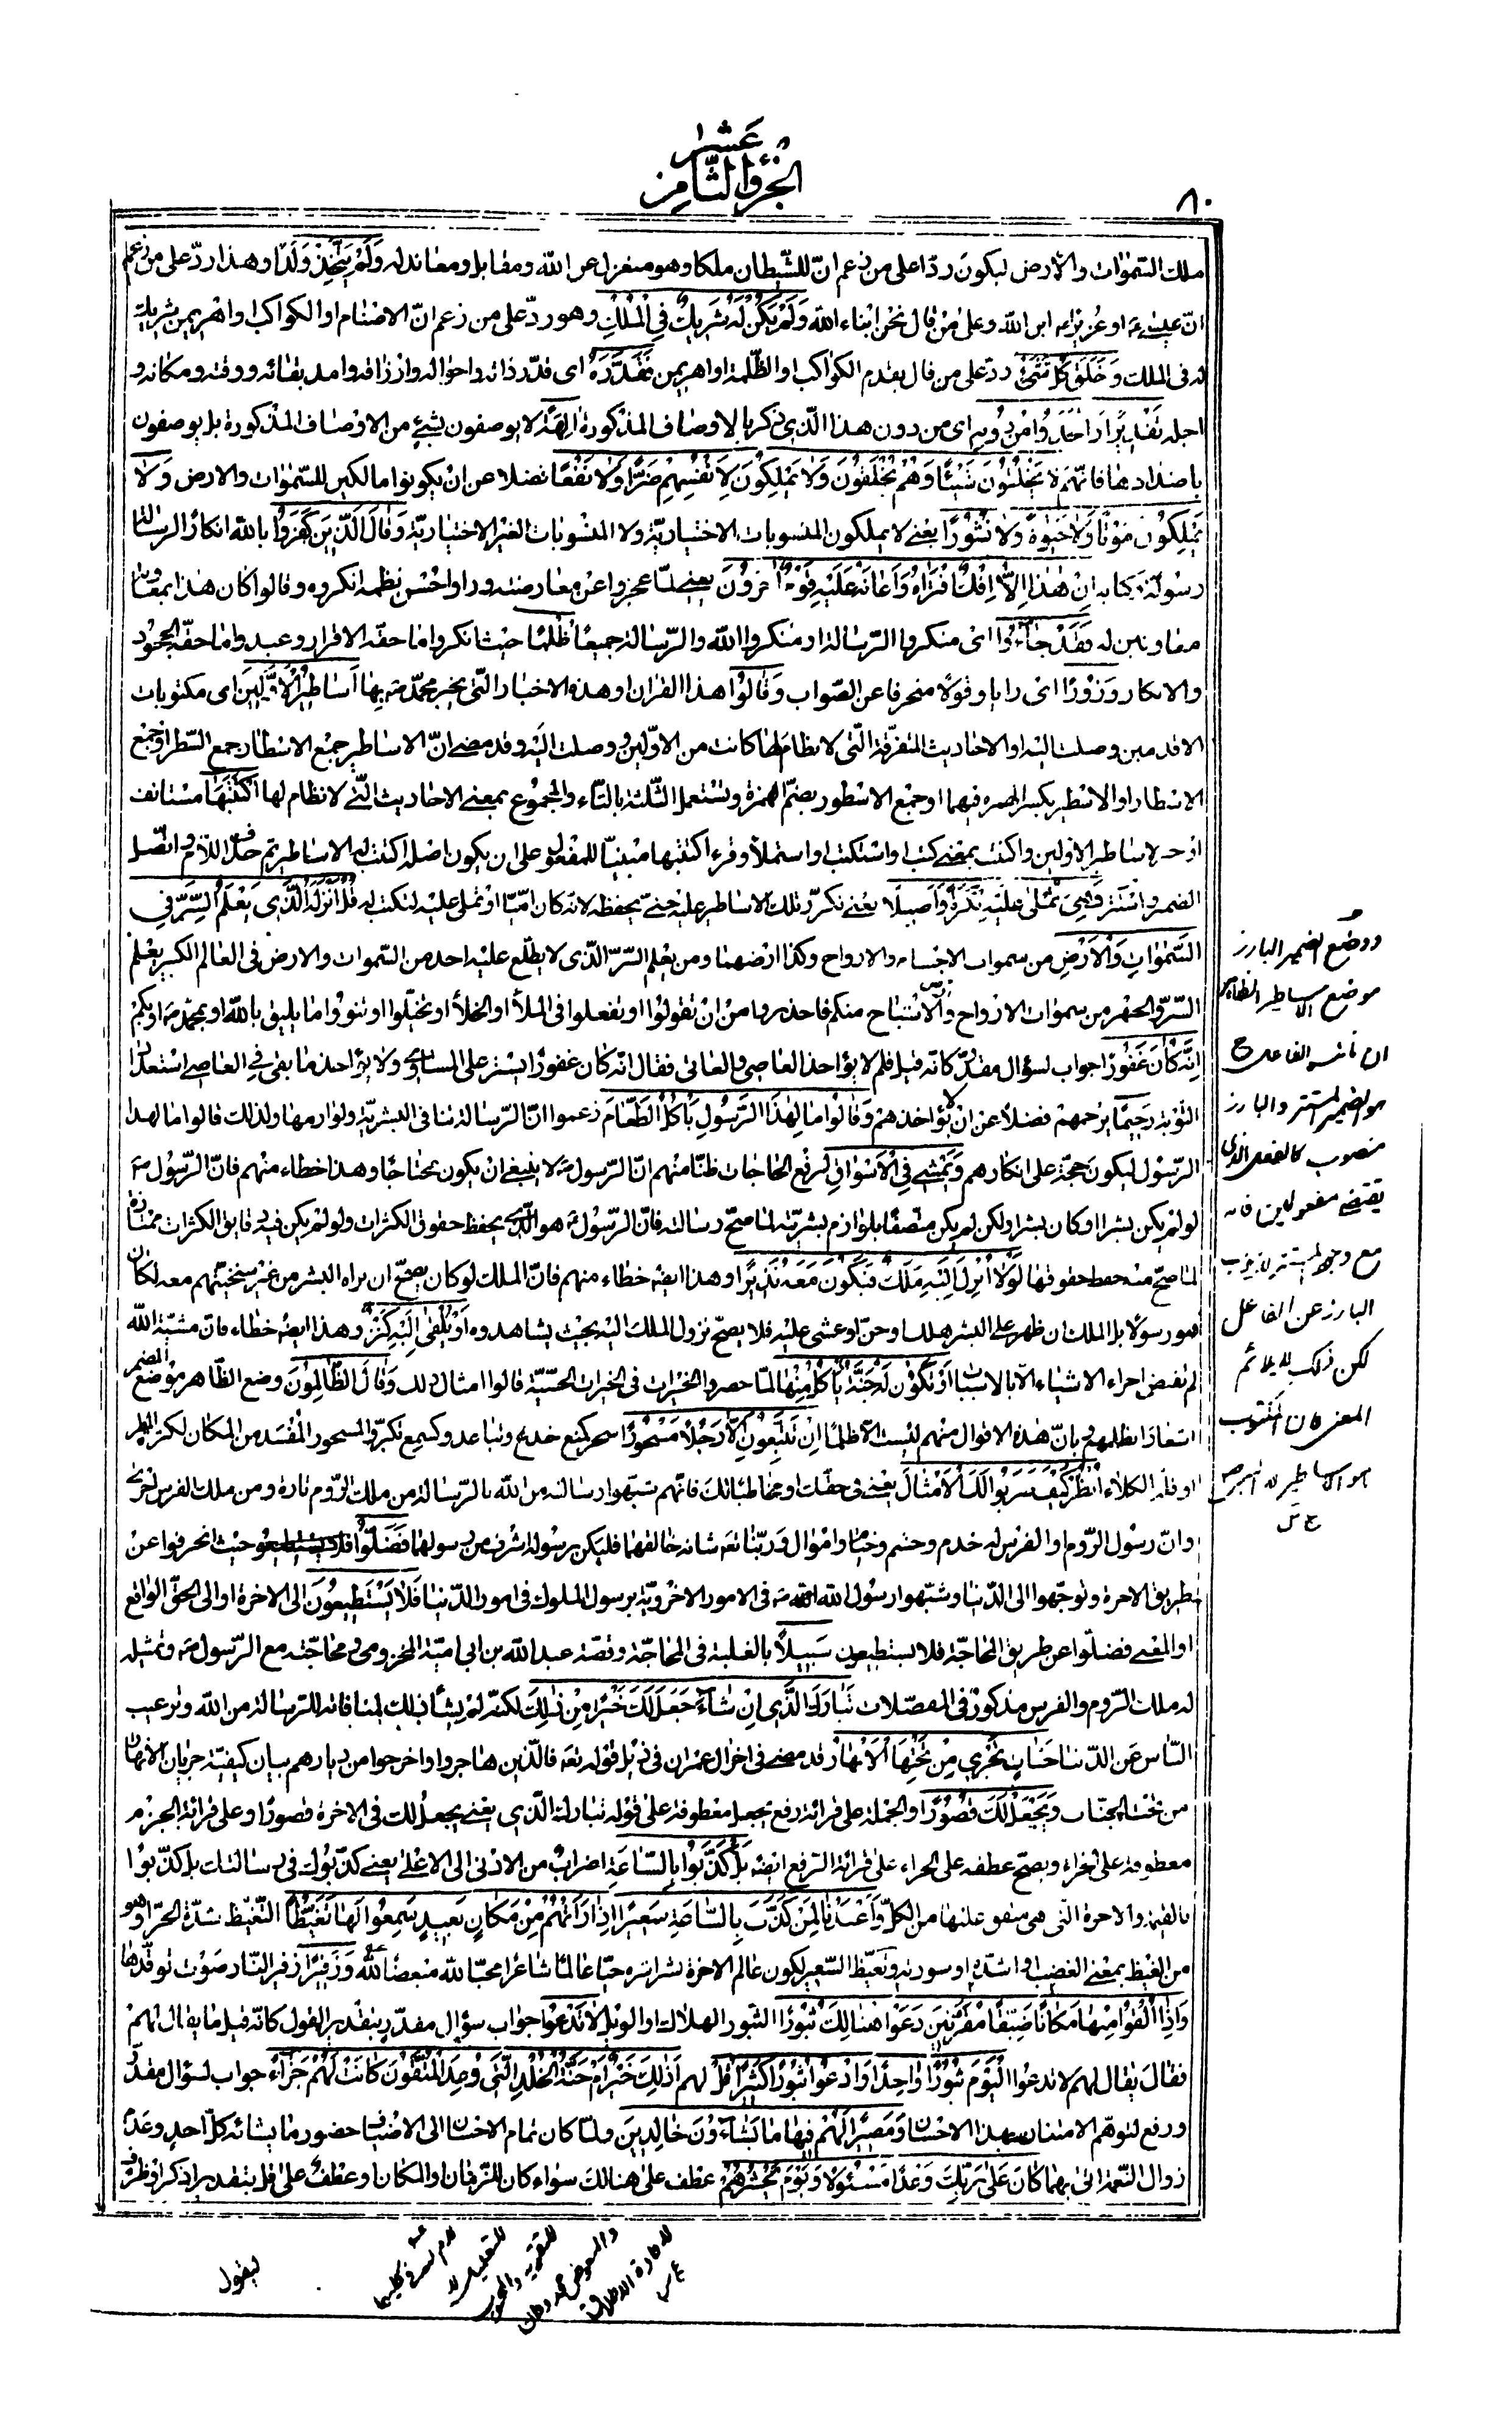 الجزؤ الثامن عشر
٨٠
ملك السّموات والأرض ليكون ردّا على من زعم انّ للشّيطان ملكا وهو منعزل عن الله ومقابل ومعاند له وَلَمْ يَتَّخِذْ وَلَدًا وهذا ردّ على من زعم
انّ عيسى ع او عزيز ع ابن الله وعلى من قال نحن ابناء الله وَلَمْ يَكُنْ لَهُ شَرِيكٌ فِي الْمُلْكِ وهو ردّ على من زعم انّ الاصنام او الكواكب او اهريمن شريك
له فى الملك وَخَلَقَ كُلَّ شَيْءٍ ردّ على من قال بقدم الكواكب او الظّلمة او اهريمن فَقَدَّرَهُ اى قدّر ذاته واحواله وارزاقه وامد بقائه ووقته ومكانه و
اجله تَقْدِيرًا وَاتَّخَذُوا مِنْ دُونِهِ اى من دون هذا الّذى ذكر بالاوصاف المذكورة الِهَةً لا يوصفون بشيء من الاوصاف المذكورة بل يوصفون
باضدادها فانّهم لَا يَخْلُقُونَ شَيْئًا وَهُمْ يُخْلَقُونَ وَلَا يَمْلِكُونَ لِأَنْفُسِهِمْ ضَرًّا وَلَا نَفْعًا فضلا عن ان يكونوا مالكين للسّموات والارض وَلَا
يَمْلِكُونَ مَوْتًا وَلَا حَيٰوةً وَلَا نُشُورًا يعنى لا يملكون المنسوبات الاختياريّة ولا المنسوبات الغير الاختياريّة وَقَالَ الَّذِينَ كَفَرُوا بالله انكار الرسالة
رسوله وكتابه اِنْ هٰذَا اِلَّا اِفْكٌ افْتَرَاهُ وَاَعَانَهُ عَلَيْهِ قَوْمٌ اٰخَرُونَ يعنى لمّا عجزوا عن معارضته وراوا حسن نظمه انكروه وقالوا كان هذا بمعاونة
معاونين له فَقَدْ جَاءُوا اى منكروا الرّسالة او منكروا الله والرّسالة جميعًا ظُلْمًا حيث انكروا ما حقّه الاقرار وعبدوا ما حقّه الجحود
والانكار وَزُورًا اى رايا وقولًا منحرفا عن الصّواب وَقَالُوا هذا القران او هذه الاخبار الّتى يخبر محمّد ص بها اَسَاطِيرُ الْاَوَّلِينَ اى مكتوبات
الاقدمين وصلت اليه او الاحاديث المتفرّقة الّتى لا نظام لها كانت من الاوّلين ووصلت اليه وقد مضى انّ الاساطير جمع الاسطار جمع السّطر او جمع
الاسطار او الاسطير بكسر الهمزة فيهما او جمع الاسطور بضمّ الهمزة وتستعمل الثّلثة بالتّاء والمجموع بمعنى الاحاديث الّتى لا نظام لها اكْتَتَبَهَا مستانف
او حال لاساطير الاوّلين واكتتب بمعنى كتب او استكتب او استملأ وقرء اكتتبها مبنيّا للمفعول على ان يكون اصله اكتتب له الاساطير ثم حذف اللّام واتّصل
الضمير واستتر فَهِيَ تُمْلٰى عَلَيْهِ بُكْرَةً وَاَصِيلًا يعنى تكرّر تلك الاساطير عليه حتّى يحفظه لانّه كان امّيّا او تملى عليه لتكتب له قُلْ اَنْزَلَهُ الَّذِى يَعْلَمُ السِّرَّ فِى
السَّمٰوَاتِ وَالْاَرْضِ من سموات الاجسام والارواح وكذا ارضهما ومن يعلم السّرّ الّذى لا يطّلع عليه احد من السّموات والارض فى العالم الكبير يعلم
السّرّ والجهر من سموات الارواح وارض الاشباح منكم فاحذروا من ان تقولوا او تفعلوا فى الملأ او الخلأ او تخيّلوا او تنووا ما لا يليق بالله او بمحمّد ص او بكم
اِنَّهُ كَانَ غَفُورًا جواب لسؤال مقدّر كانّه قيل فلم لا يؤاخذ العاصى والعاتى فقال انّه كان غفورًا يستر على المساوى ولا يؤاخذ ما بقى فى العاصى استعداد
التّوبة رَحِيمًا يرحمهم فضلًا عن ان لا يؤاخذهم وَقَالُوا مَا لِهٰذَا الرَّسُولِ يَاْكُلُ الطَّعَامَ زعموا انّ الرّسالة تنافى البشريّة ولوازمها ولذلك قالوا ما لهذا
الرّسول ليكون حجّة على انكارهم وَيَمْشِى فِى الْاَسْوَاقِ لرفع الحاجات ظنّا منهم انّ الرّسول ص لا ينبغى ان يكون محتاجًا وهذا خطاء منهم فانّ الرّسول ص
لو لم يكن بشرا او كان بشرا ولكن لم يكن متّصفًا بلوازم بشريّته لما صحّ رسالته فانّ الرّسول ص هو الّذى يحفظ حقوق الكثرات ولو لم يكن فيه رقايق الكثرات ممتازة
لما صحّ منه حفظ حقوقها لَوْلَا اُنْزِلَ اِلَيْهِ مَلَكٌ فَيَكُونَ مَعَهُ نَذِيرًا وهذا ايضا خطاء منهم فانّ الملك لو كان يصحّ ان يراه البشر من غير سنخيّتهم معه لكان
هو رسولًا بل الملك ان ظهر على البشر هلك او جنّ او غشى عليه فلا يصحّ نزول الملك اليه بحيث يشاهدوه اَوْ يُلْقٰى اِلَيْهِ كَنْزٌ وهذا ايضا خطاء فانّ مشيّة الله
لم تقتض اجراء الاشياء الّا بالاسباب اَوْ تَكُونُ لَهُ جَنَّةٌ يَاْكُلُ مِنْهَا لمّا حصروا الخيرات فى الخيرات الحسّيّة قالوا امثال ذلك وَقَالَ الظَّالِمُونَ وضع الظّاهر موضع المضمر
اشعارًا بظلمهم بانّ هذه الاقوال منهم ليست الّا ظلمًا اِنْ تَتَّبِعُونَ اِلَّا رَجُلًا مَسْحُورًا سحر كمنع خدع وتباعد وكسمع تكبّر والمسحور المفسد من المكان لكثرة المطر
او قلّة الكلاء اُنْظُرْ كَيْفَ ضَرَبُوا لَكَ الْاَمْثَالَ يعنى فى حقّك او مخاطباتك فانّهم شبّهوا رسالته من الله بالرّسالة من ملك الرّوم تارة ومن ملك الفرس اخرى
وانّ رسول الرّوم او الفرس له خدم وحشم وخيام واموال وربّنا تعه شانه خالقهما فليكن رسوله اشرف من رسولهما فَضَلُّوا حيث انحرفوا عن
طريق الاخرة وتوجّهوا الى الدّنيا وشبّهوا رسول الله ص فى الامور الاخرويّة برسول الملوك فى امور الدّنيا فَلَا يَسْتَطِيعُونَ الى الاخرة او الى الحقّ الواقع
او المعنى فضلّوا عن طريق المحاجّة فلا يستطيعون سَبِيلًا بالغلبة فى المحاجّة وقصّة عبد الله بن ابى اميّة المخزومى ومحاجّته مع الرّسول ص وتمثيله
له ملك الرّوم والفرس مذكورة فى المفصّلات تَبَارَكَ الَّذِى اِنْ شَاءَ جَعَلَ لَكَ خَيْرًا مِنْ ذٰلِكَ لكنّه لم يشأ ذلك لمنافاته للرّسالة من الله وترغيب
النّاس عن الدّنيا جَنَّاتٍ تَجْرِى مِنْ تَحْتِهَا الْاَنْهَارُ قد مضى فى اخر ال عمران فى ذيل قوله تعه فالّذين هاجروا واخرجوا من ديارهم بيان كيفيّة جريان الانهار
من تحت الجنّات وَيَجْعَلْ لَكَ قُصُورًا والجملة على قرائة رفع يجعل معطوفة على قوله تبارك الّذى يعنى يجعل لك فى الاخرة قصورًا وعلى قرائة الجزم
معطوفة على الجزاء ويصحّ عطفه على الجزاء على قرائة الرّفع ايضا بَلْ كَذَّبُوا بِالسَّاعَةِ اضراب من الادنى الى الاعلى يعنى كذّبوك فى رسالتك بل كذّبوا
بالقيمة والاخرة الّتى هى متفق عليها من الكلّ وَاَعْتَدْنَا لِمَنْ كَذَّبَ بِالسَّاعَةِ سَعِيرًا اِذَا رَاَتْهُمْ مِنْ مَكَانٍ بَعِيدٍ سَمِعُوا لَهَا تَغَيُّظًا التّغيّظ شدّة الحرّ او هو
من الغيظ بمعنى الغضب او اشدّه او سورته وتغيّظ السّعير لكون عالم الاخرة بشراشره حيّا عالمًا شاعرا محبّا لله مبغضًا لله وَزَفِيرًا زفير النّار صوت توقّدها
وَاِذَا اُلْقُوا مِنْهَا مَكَانًا ضَيِّقًا مُقَرَّنِينَ دَعَوْا هُنَالِكَ ثُبُورًا الثّبور الهلاك او الويل لَا تَدْعُوا جواب سؤال مقدّر بتقدير القول كانّه قيل ما يقال لهم
فقال يقال لهم لا تدعوا الْيَوْمَ ثُبُورًا وَاحِدًا وَادْعُوا ثُبُورًا كَثِيرًا قُلْ لهم اَذٰلِكَ خَيْرٌ اَمْ جَنَّةُ الْخُلْدِ الَّتِى وُعِدَ الْمُتَّقُونَ كَانَتْ لَهُمْ جَزَاءً جواب لسؤال مقدّر
ورفع لتوهّم الامتنان بهذا الاحسان وَمَصِيرًا لَهُمْ فِيهَا مَا يَشَاءُونَ خَالِدِينَ ولمّا كان تمام الاحسان الى الاضياف حضور ما يشائه كلّ احد وعدم
زوال النّعمة اتى بهما كَانَ عَلٰى رَبِّكَ وَعْدًا مَسْئُولًا وَيَوْمَ يَحْشُرُهُمْ عطف على هنالك سواء كان للزّمان او المكان او عطف على قل بتقدير اذكر او ظرف
ووضع الضمير البارز
موضع الاساطير
ان نائب الفاعل ح
هو الضمير المستتر والبارز
منصوب كالفعل الذى
يقتضى مفعولين فانه
مع وجود المستتر لا ينوب
البارز عن الفاعل
لكن ذلك لا يلائم
المعنى فان المكتوب
هو الاساطير لا
ليقول